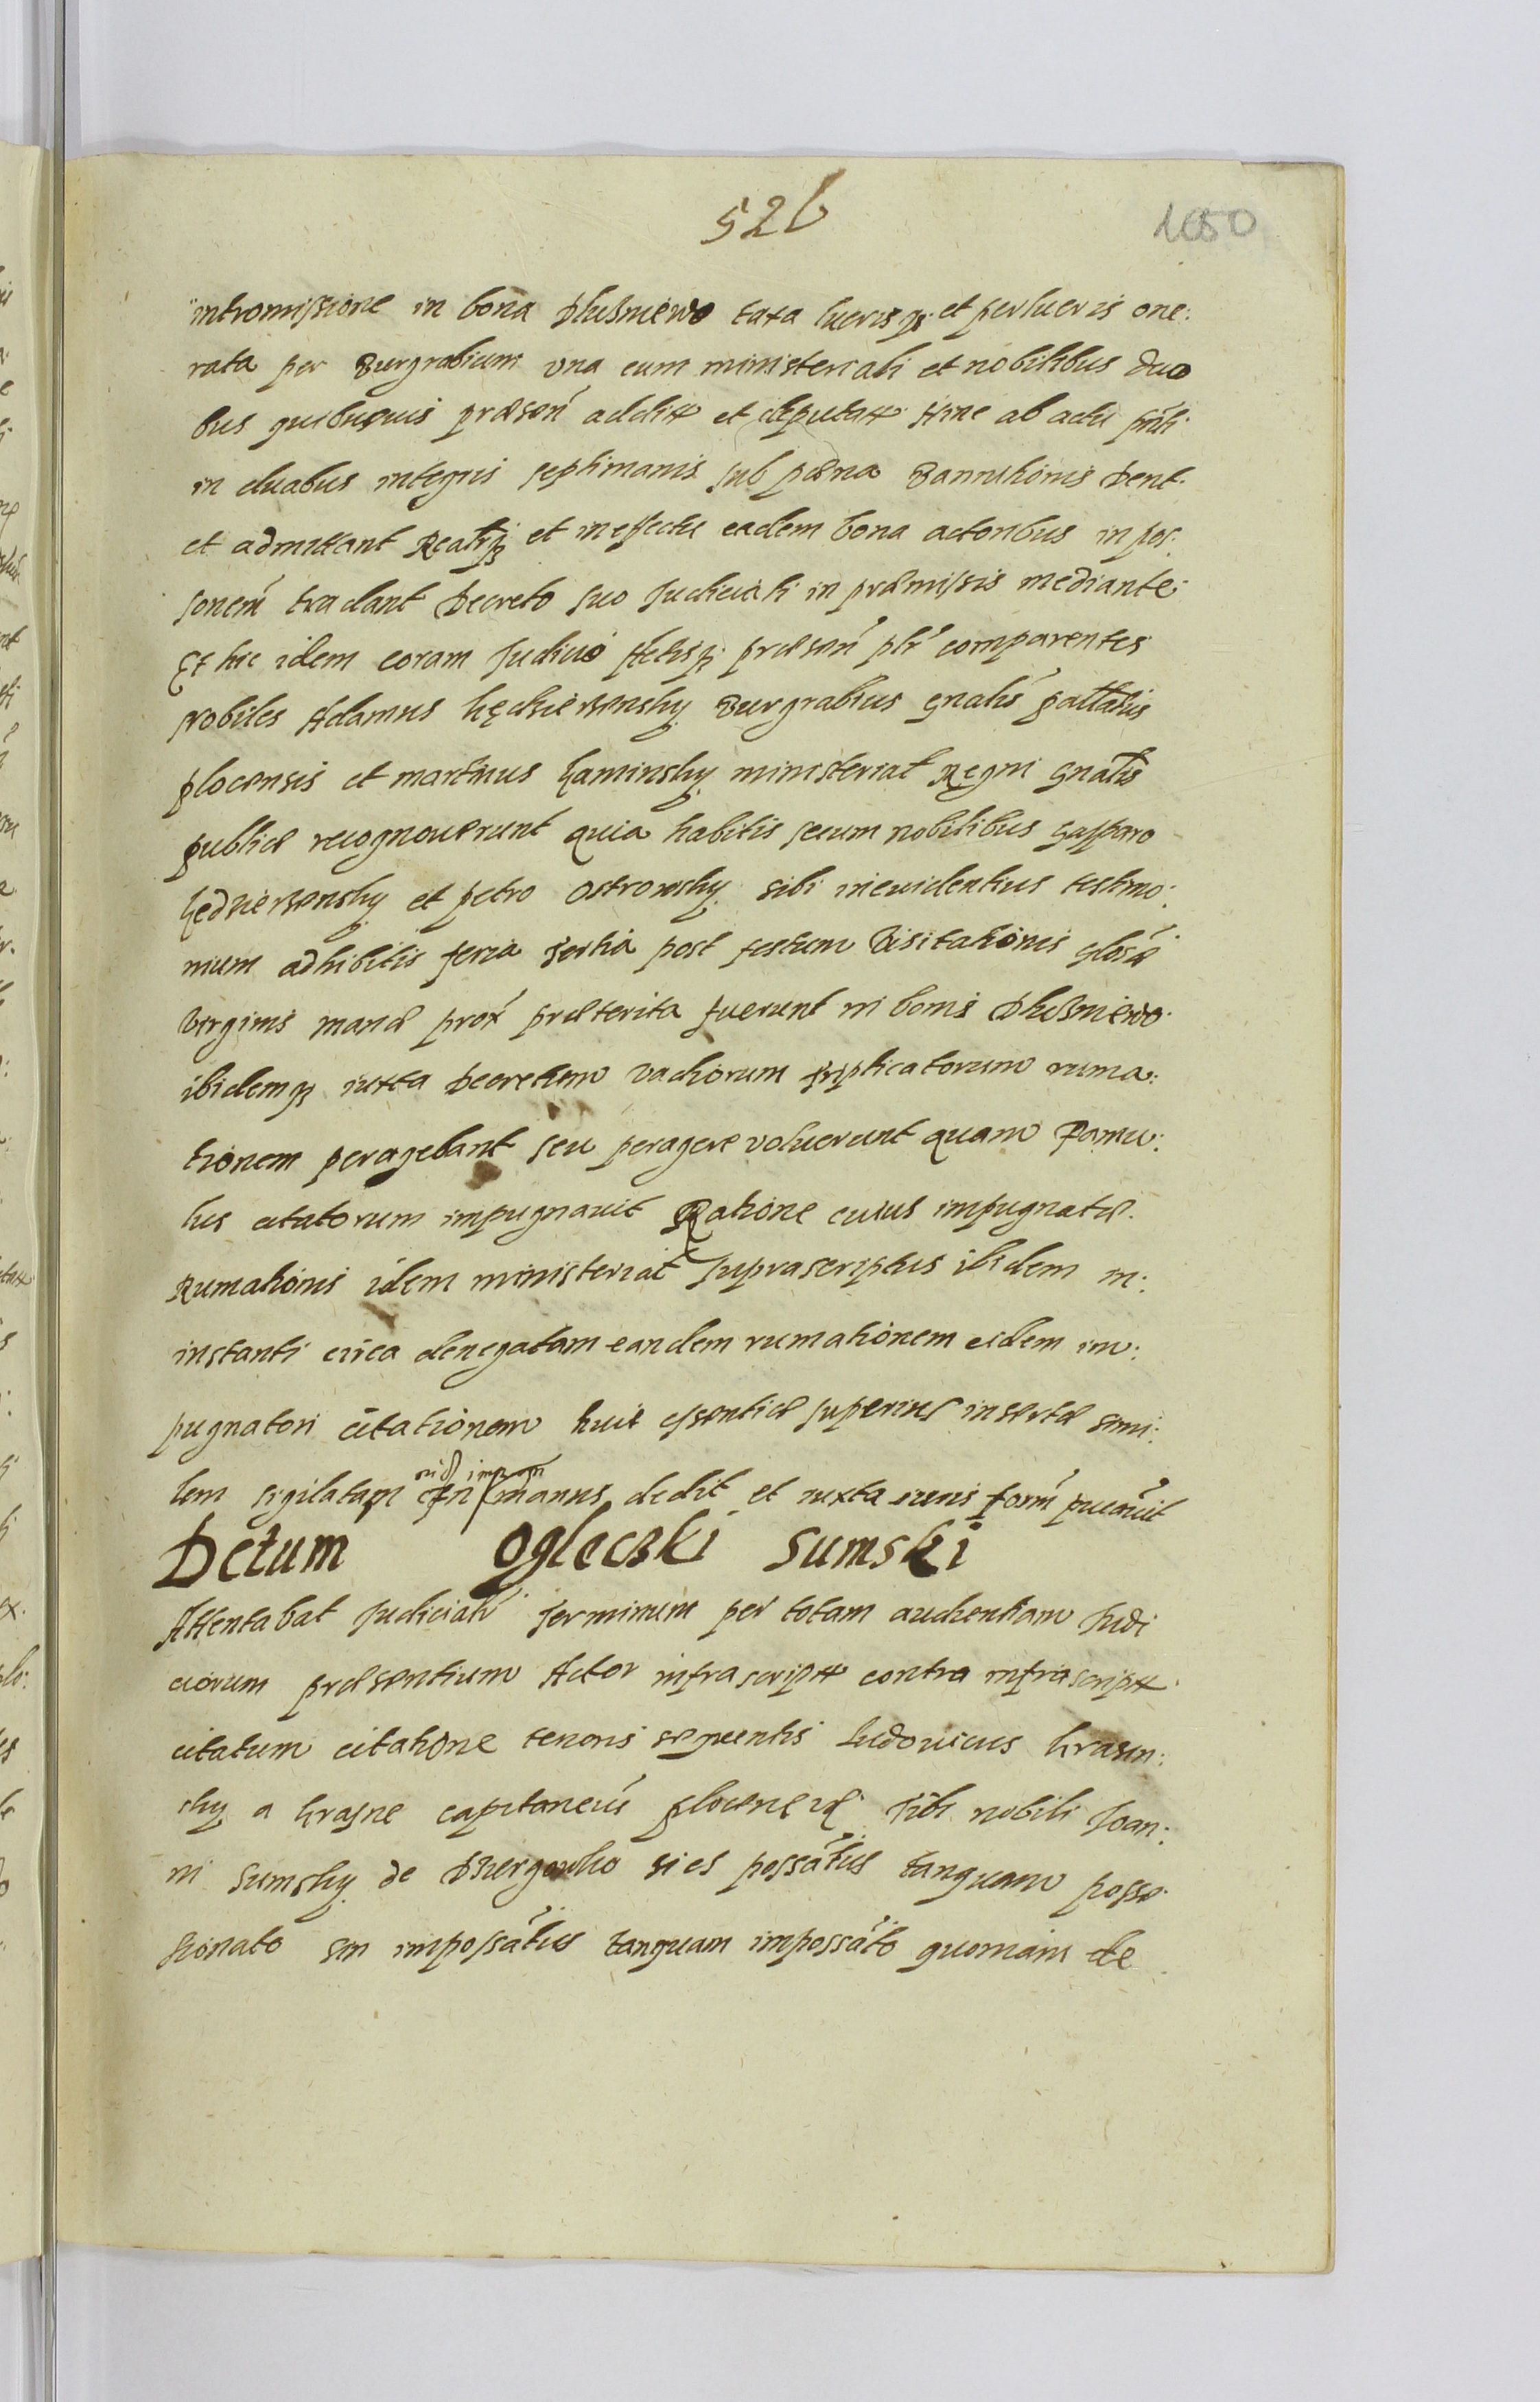 526
1050
intromissione in bona Dluzniewo taxa lucris q3 et perlucris one:
rata per Burgrabium una cum ministeriali et nobilibus duo
bus quibusuis præsen addit et deputat Hinc ab actu pnti
in duabus integris septimanis sub pæna Bannitionis Dent
et admittant Realr q3 et in effectu eadem bona actoribus in pos:
sonem tradant Decreto suo Judiciali in præmissis mediante
Et hic idem coram Judicio Actisq3 præsen plr comparentes
Nobiles Adamus Kędzierzensky Burgrabius gnalis pallatus
plocensis et martinus Kaminsky ministerial Regni gnalis
publice recognouerunt quia habitis secum nobilibus Gasparo
Kedzierzensky et petro Ostrowsky sibi in euidentius testimo:
nium adhibitis feria tertia post festum Visitationis glosæ
Virginis mariæ prox præterita fuerunt in bonis Dluzniewo
ibidemq3 iuxta Decretum vadiorum triplicatorum ruma:
tionem peragebant seu peragere voluerunt quam Famu:
lus citatorum impugnauit Ratione cuius impugnatæ
Rumationis idem ministerial suprascriptus ibidem in:
instanti circa denegatam eandem rumationem eidem im:
pugnatori citationem huic essentiæ superius insertæ simi:
lem sigilatam in manus dedit et iuxta iuris form
Dctum Ogleczki Sumski
Attentabat Judicialr Terminum per totam audientiam Judi
ciorum præsentium Actor infrascript contra infrascript
citatum citatione tenoris sequentis Ludouicus Krasin:
sky a Krasne capitaneus plocen Tibi nobili Joan:
ni Sumsky de si es possatus tanquam posse
sionato sin impossatus tanquam impossato quoniam de